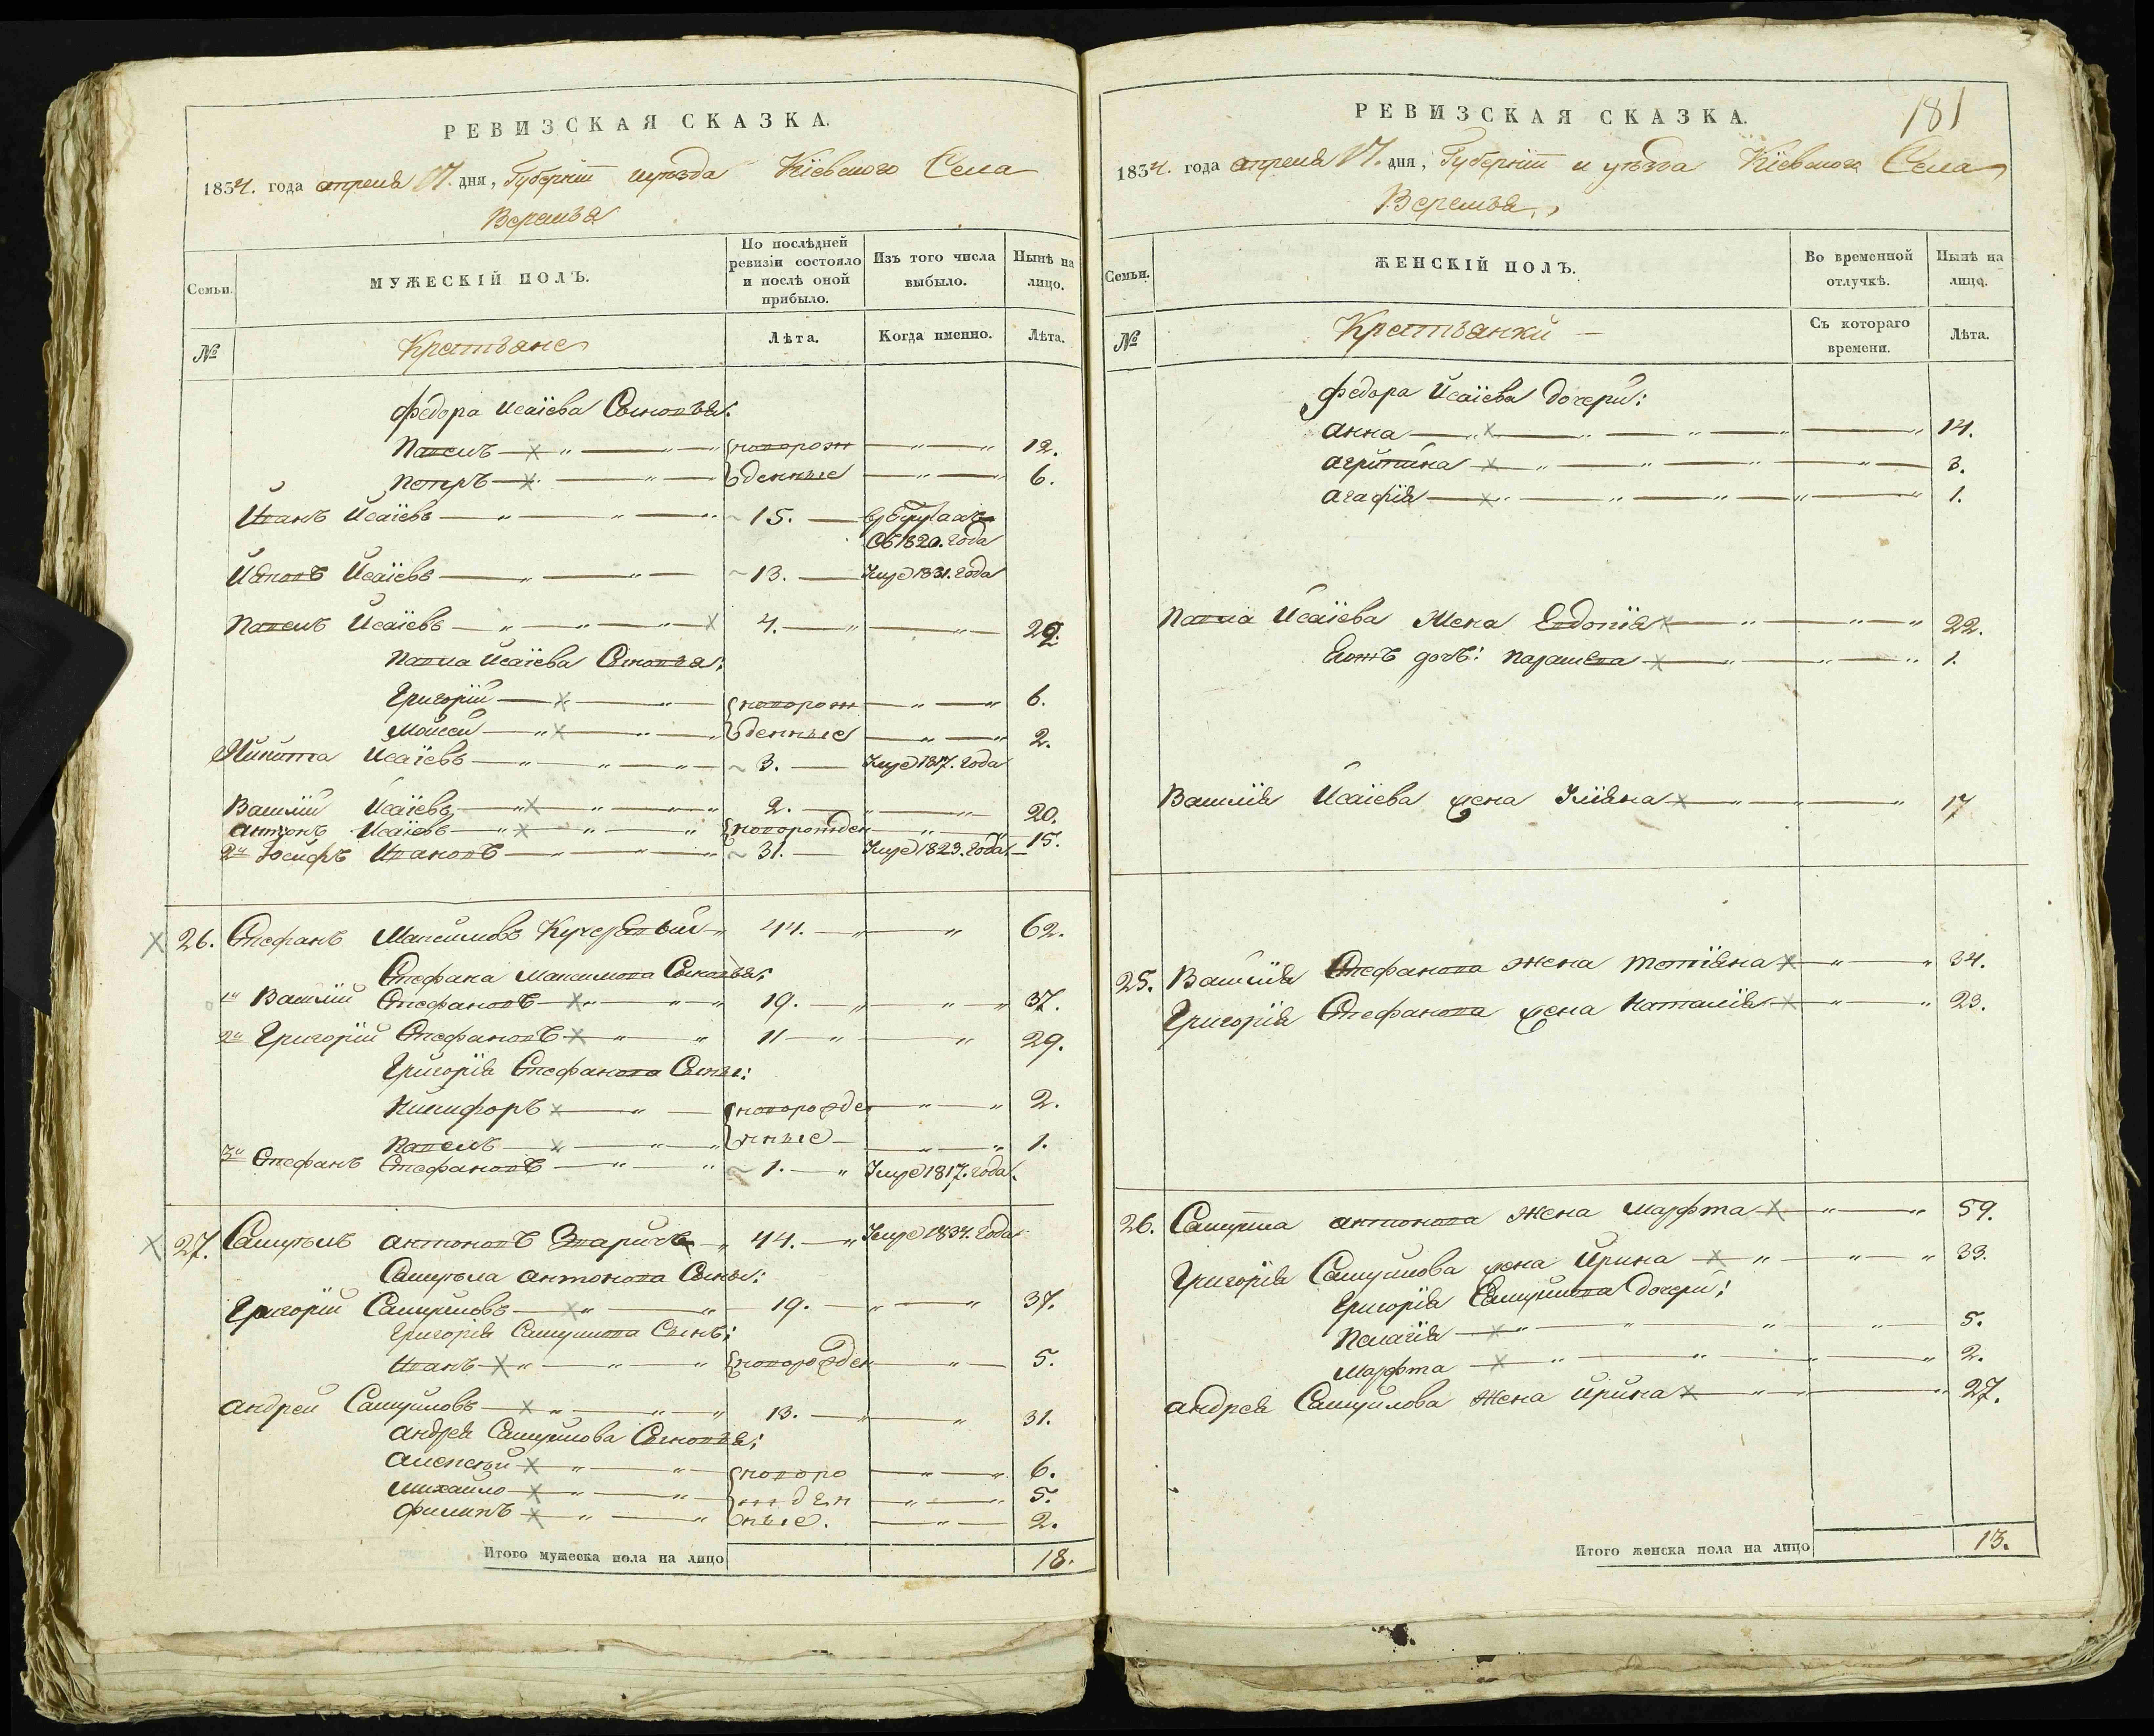 РЕВИЗСКАЯ СКАЗКА.
1834. года апреля 17. дня, Губернiи и уѣзда Кiевского Села
Веремья
Семьи.
МУЖЕСКIЙ ПОЛЪ.
По послѣдней ревизiи состояло и послѣ оной прибыло.
Изъ того числа выбыло.
Нынѣ на лицо.
№
Крестьяне
Лѣта.
Когда именно.
Лѣта.
Федора Исаiева Сыновья:
Павелъ новорож 12.
Петръ денные 6.
Иванъ Исаiевъ 15. въ бѣгахъ
съ 1820. года
Исаiевъ 13. Умре 1831. года
Павелъ Исаiевъ 4. 22.
Павла Исаiева Сыновья:
Григорiй новорож 6.
Моисей денные 2.
Никита Исаiевъ 3. Умре 1817. года
Василiй Исаiевъ 2. 20.
Антонъ Исаiевъ новорожден 15.
2й Iосифъ Ивановъ 31. Умре 1823. года
26. Стефанъ Максимовъ Кучерявый 44. 62.
Стефана Максимова Сыновья:
1й Василiй Стефановъ 19. 37.
2й Григорiй Стефановъ 11 29.
Григорiя Стефанова Сыны:
Никифоръ новорожде 2.
Павелъ нные 1.
3й Стефанъ Стефановъ 1. Умре 1817. года.
27. Самуѣлъ Антоновъ 44. Умре 1834. года
Самуѣла Антонова Сыны:
Григорiй Самуиловъ 19. 37.
Григорiя Самуилова Сынъ:
Иванъ новорожден 5.
Андрей Самуиловъ 13. 31.
Андрея Самуилова Сыновья:
Алексѣй новоро 6.
Михайло жден 5.
Филипъ ные. 2.
Итого мужеска пола на лицо 18.
181
РЕВИЗСКАЯ СКАЗКА.
1834. года апреля 17. дня, Губернiи и уѣзда Кiевского Села
Веремья
Семьи.
ЖЕНСКIЙ ПОЛЪ.
Во временной отлучкѣ.
Нынѣ на лицо.
№
Крестьянки
Съ котораго времени.
Лѣта.
Федора Исаiева дочери:
Анна 14.
Агрипина 3.
Агафiя 1.
Павла Исаiева жена Евдокiя 22.
Ихъ дочь: Параскева 1.
Василiя Исаiева жена Улiяна 17
25. Василiя Стефанова жена Татiяна 34.
Григорiя Стефанова жена Наталiя 23.
26. Самуила Антонова жена Марфта 59.
Григорiя Самуилова жена Ирина 33.
Григорiя Самуилова дочери:
Пелагiя 5.
Марфта 2.
Андрея Самуилова жена Ирина 27.
Итого женска пола на лицо 13.